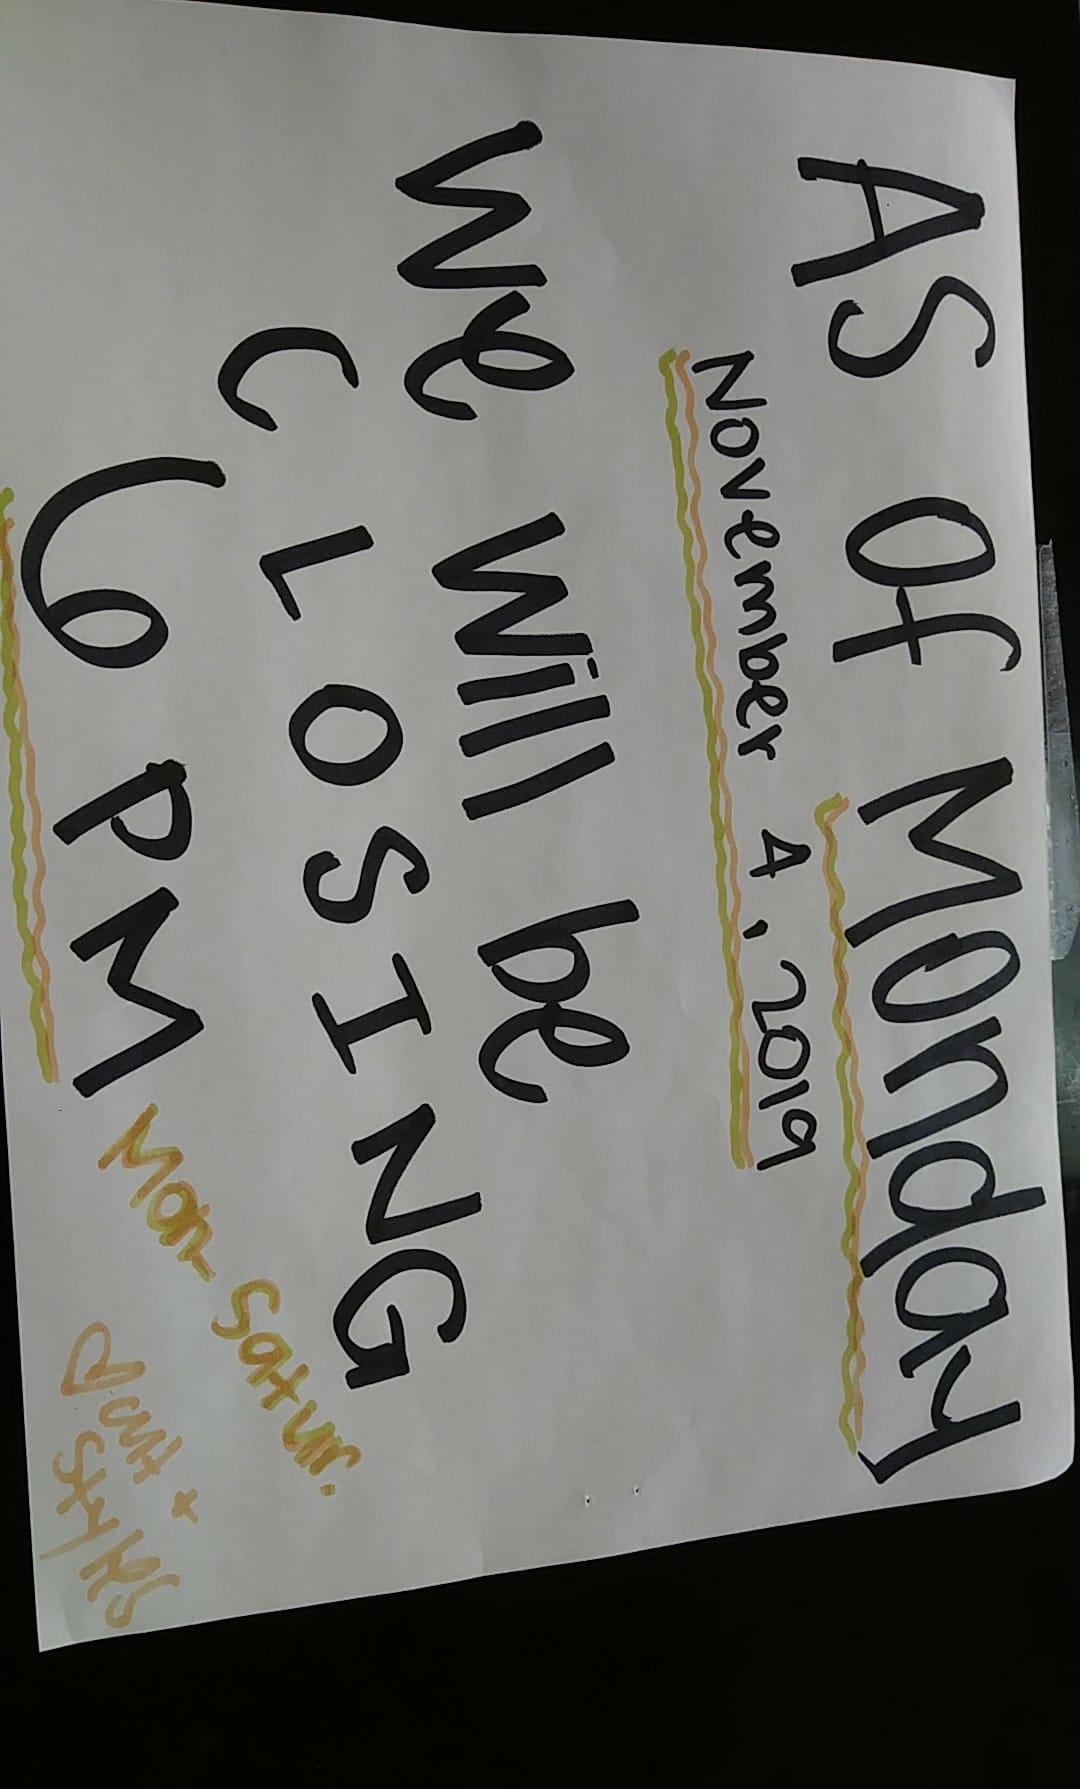 As Of Monday
November 4, 2019
We Will be
CLOSING
6 PM
Mon-Satur.
Styles